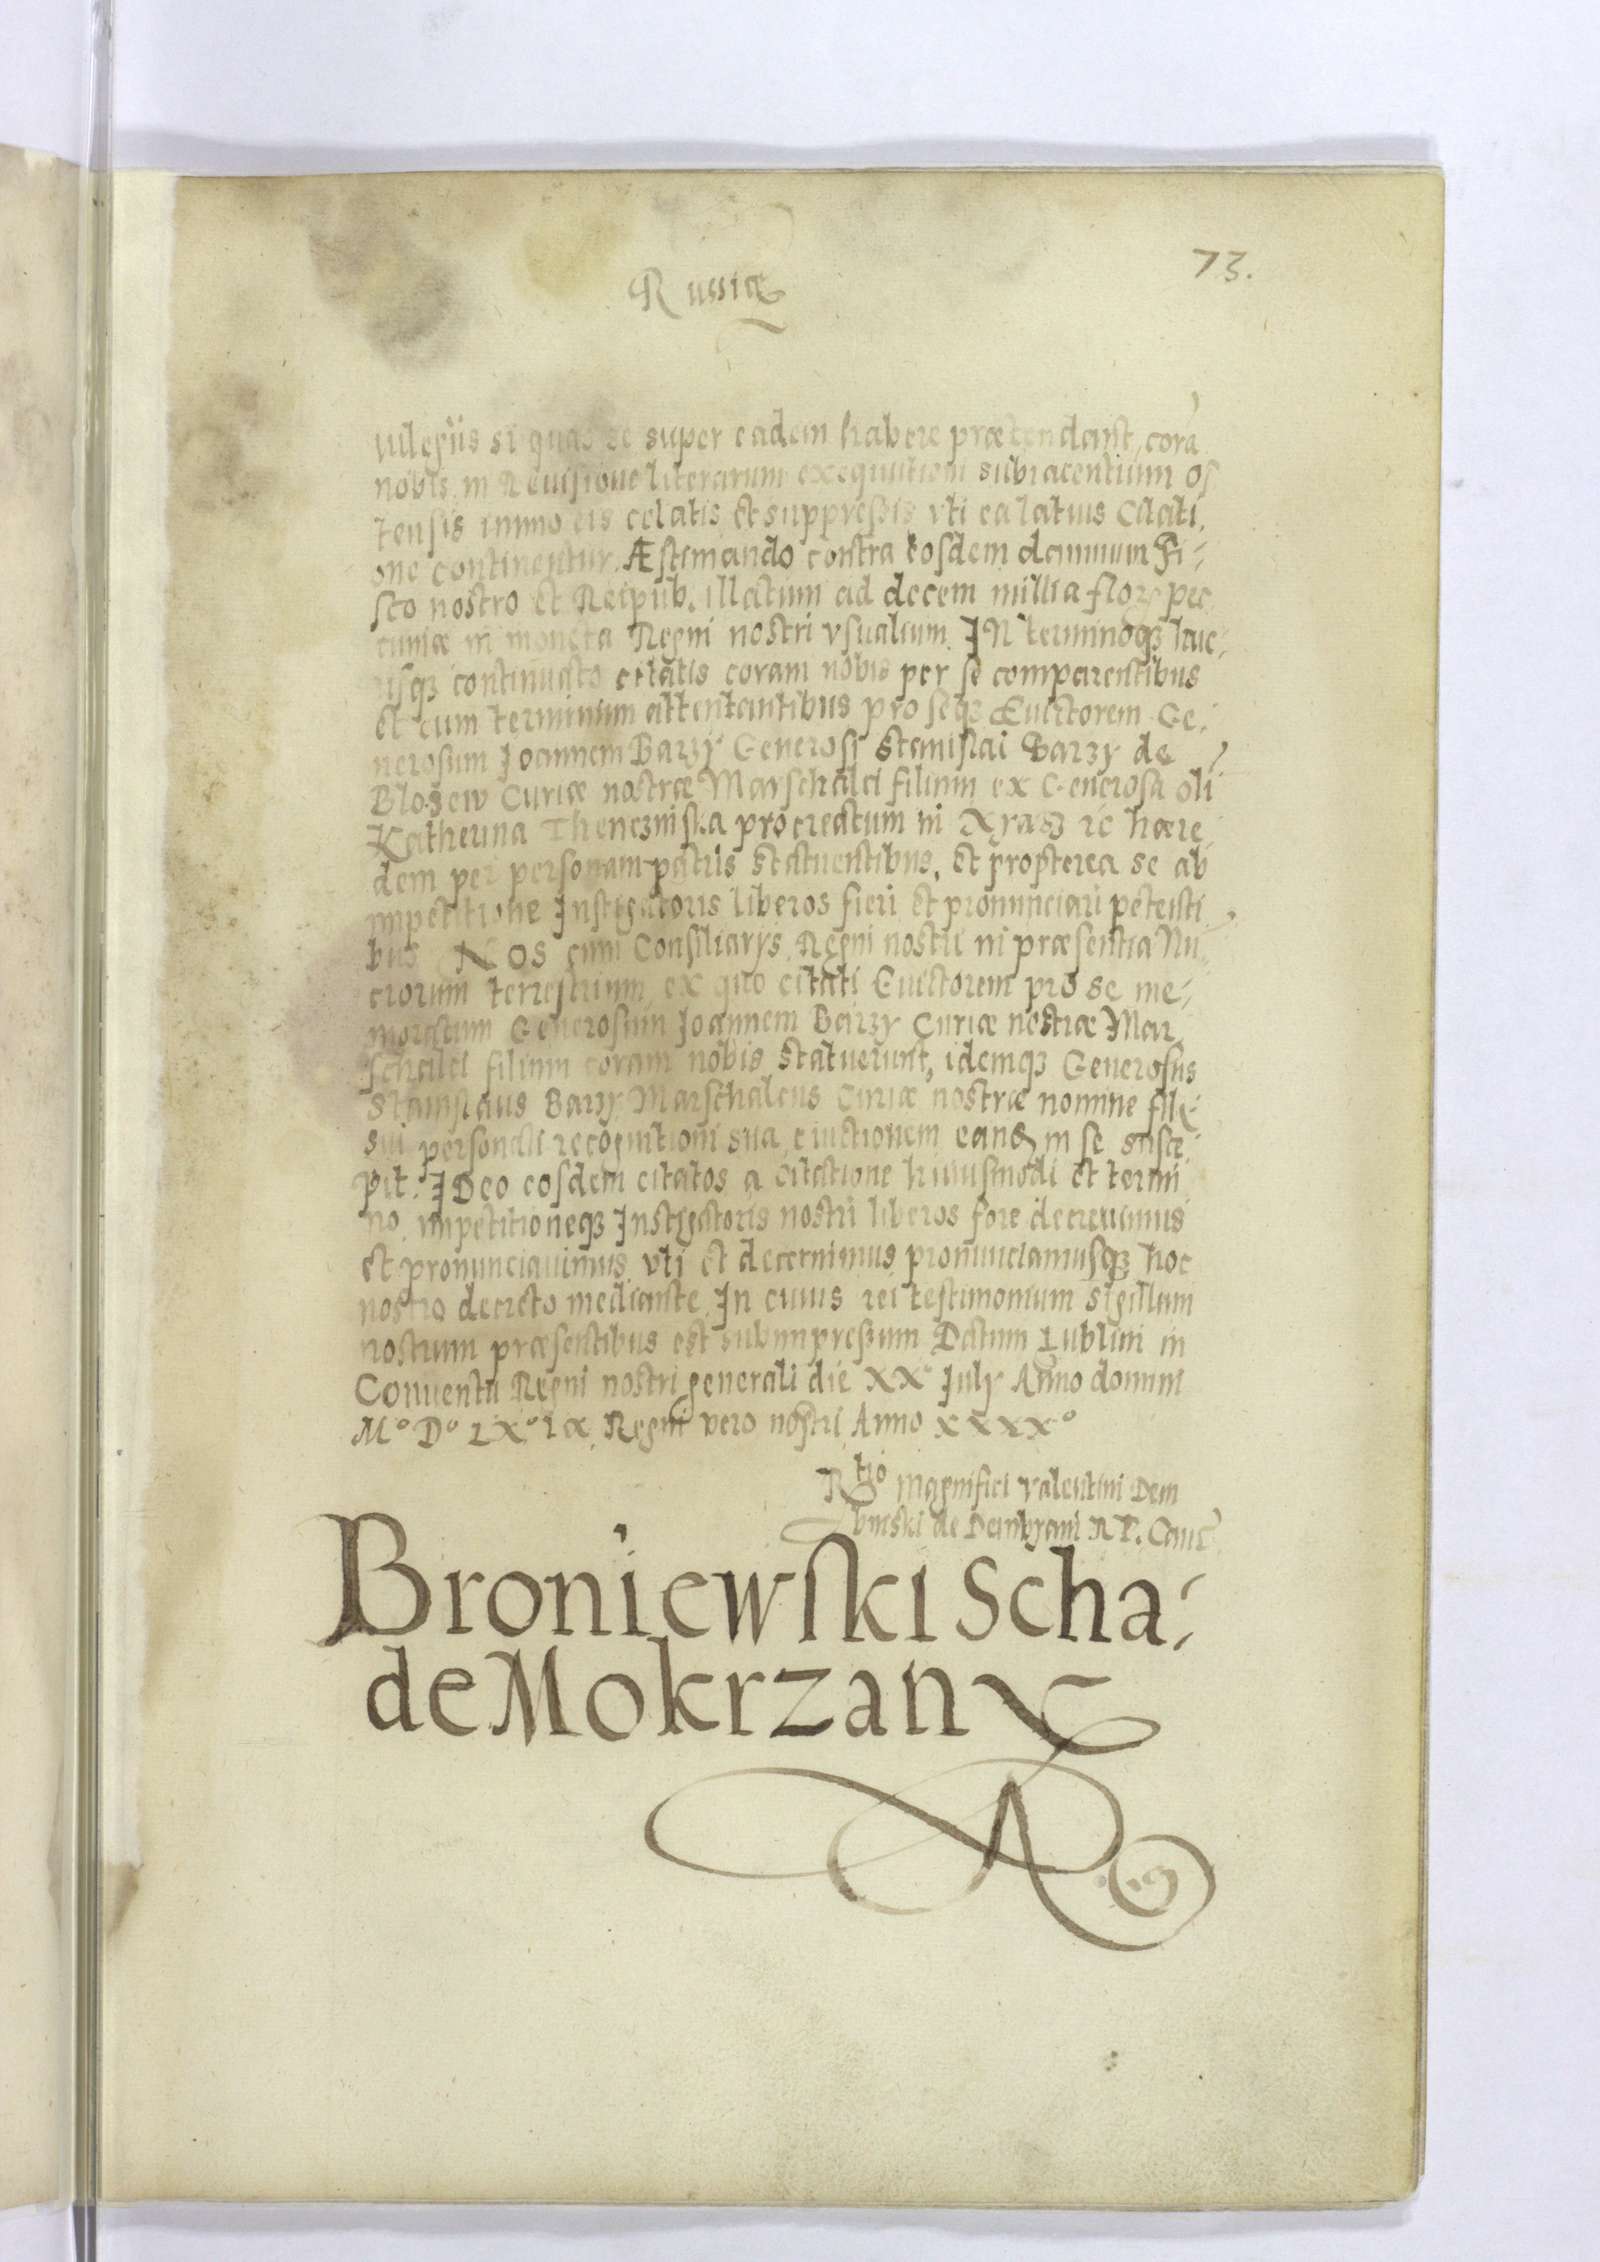 73.
Russiæ
uilegiis si quas se super eadem habere prætendant, corã
nobis in Reuisione literarum exequutioni subiacentium os
tensis immo eis celatis et suppressis vti ea latius Citati,
one continentur. Æstimando contra eosdem damnum Fi-
sco nostro et Reipub. illatum ad decem millia flore pec
cuniæ in moneta Regni nostri vsualium. IN terminoqꝫ huc-
usqꝫ continuato citatis coram nobis per se comparentibus
et eum terminum attentantibus pro seqꝫ Euictorem Ge-
nerosum Joannem Barzy Generosi Stanislai Barzy de
Blozew Curiæ nostræ Marschalci filium ex Generosa oli
Katherina Thenczniska procreatum in hære
dem per personam patris statuentibus, et propterea se ab
impetitione Instigatoris liberos fieri et pronunciari petenti
bus NOS cum Consiliarys Regni nostri in præsentia Nu-
ciorum terrestrium ex quo citati Euictorem pro se me-
moratum Generosum Joannem Barzy Curiæ nostræ Mar
schalci filium coram nobis statuerunt, idemqꝫ Generosus
Stanislaus Barzy Marschalcus Curiæ nostræ nomine filÿ
sui personali recognitioni sua, euictionem eand in se susce-
pit. IDeo eosdem citatos a citatione huiusmodi et termi
no impetitioneqꝫ Instigatoris nostri liberos fore decreuimus
et pronunciauimus vti et decernimus pronunciamusqꝫ hoc
nostro decreto mediante. In cuius rei testimonium sigillum
nostrum præsentibus est subimpressum Datum Lublini in
Conuentu Regni nostri generali die XXᵃ July Anno domini
M° D° LX° IX Regni vero nostri Anno XXXX°
Rᵗⁱᵒ Magnifici Valentini Dem
binski de Dembyani R P. Canc
Broniewski Scha-
de Mokrzan